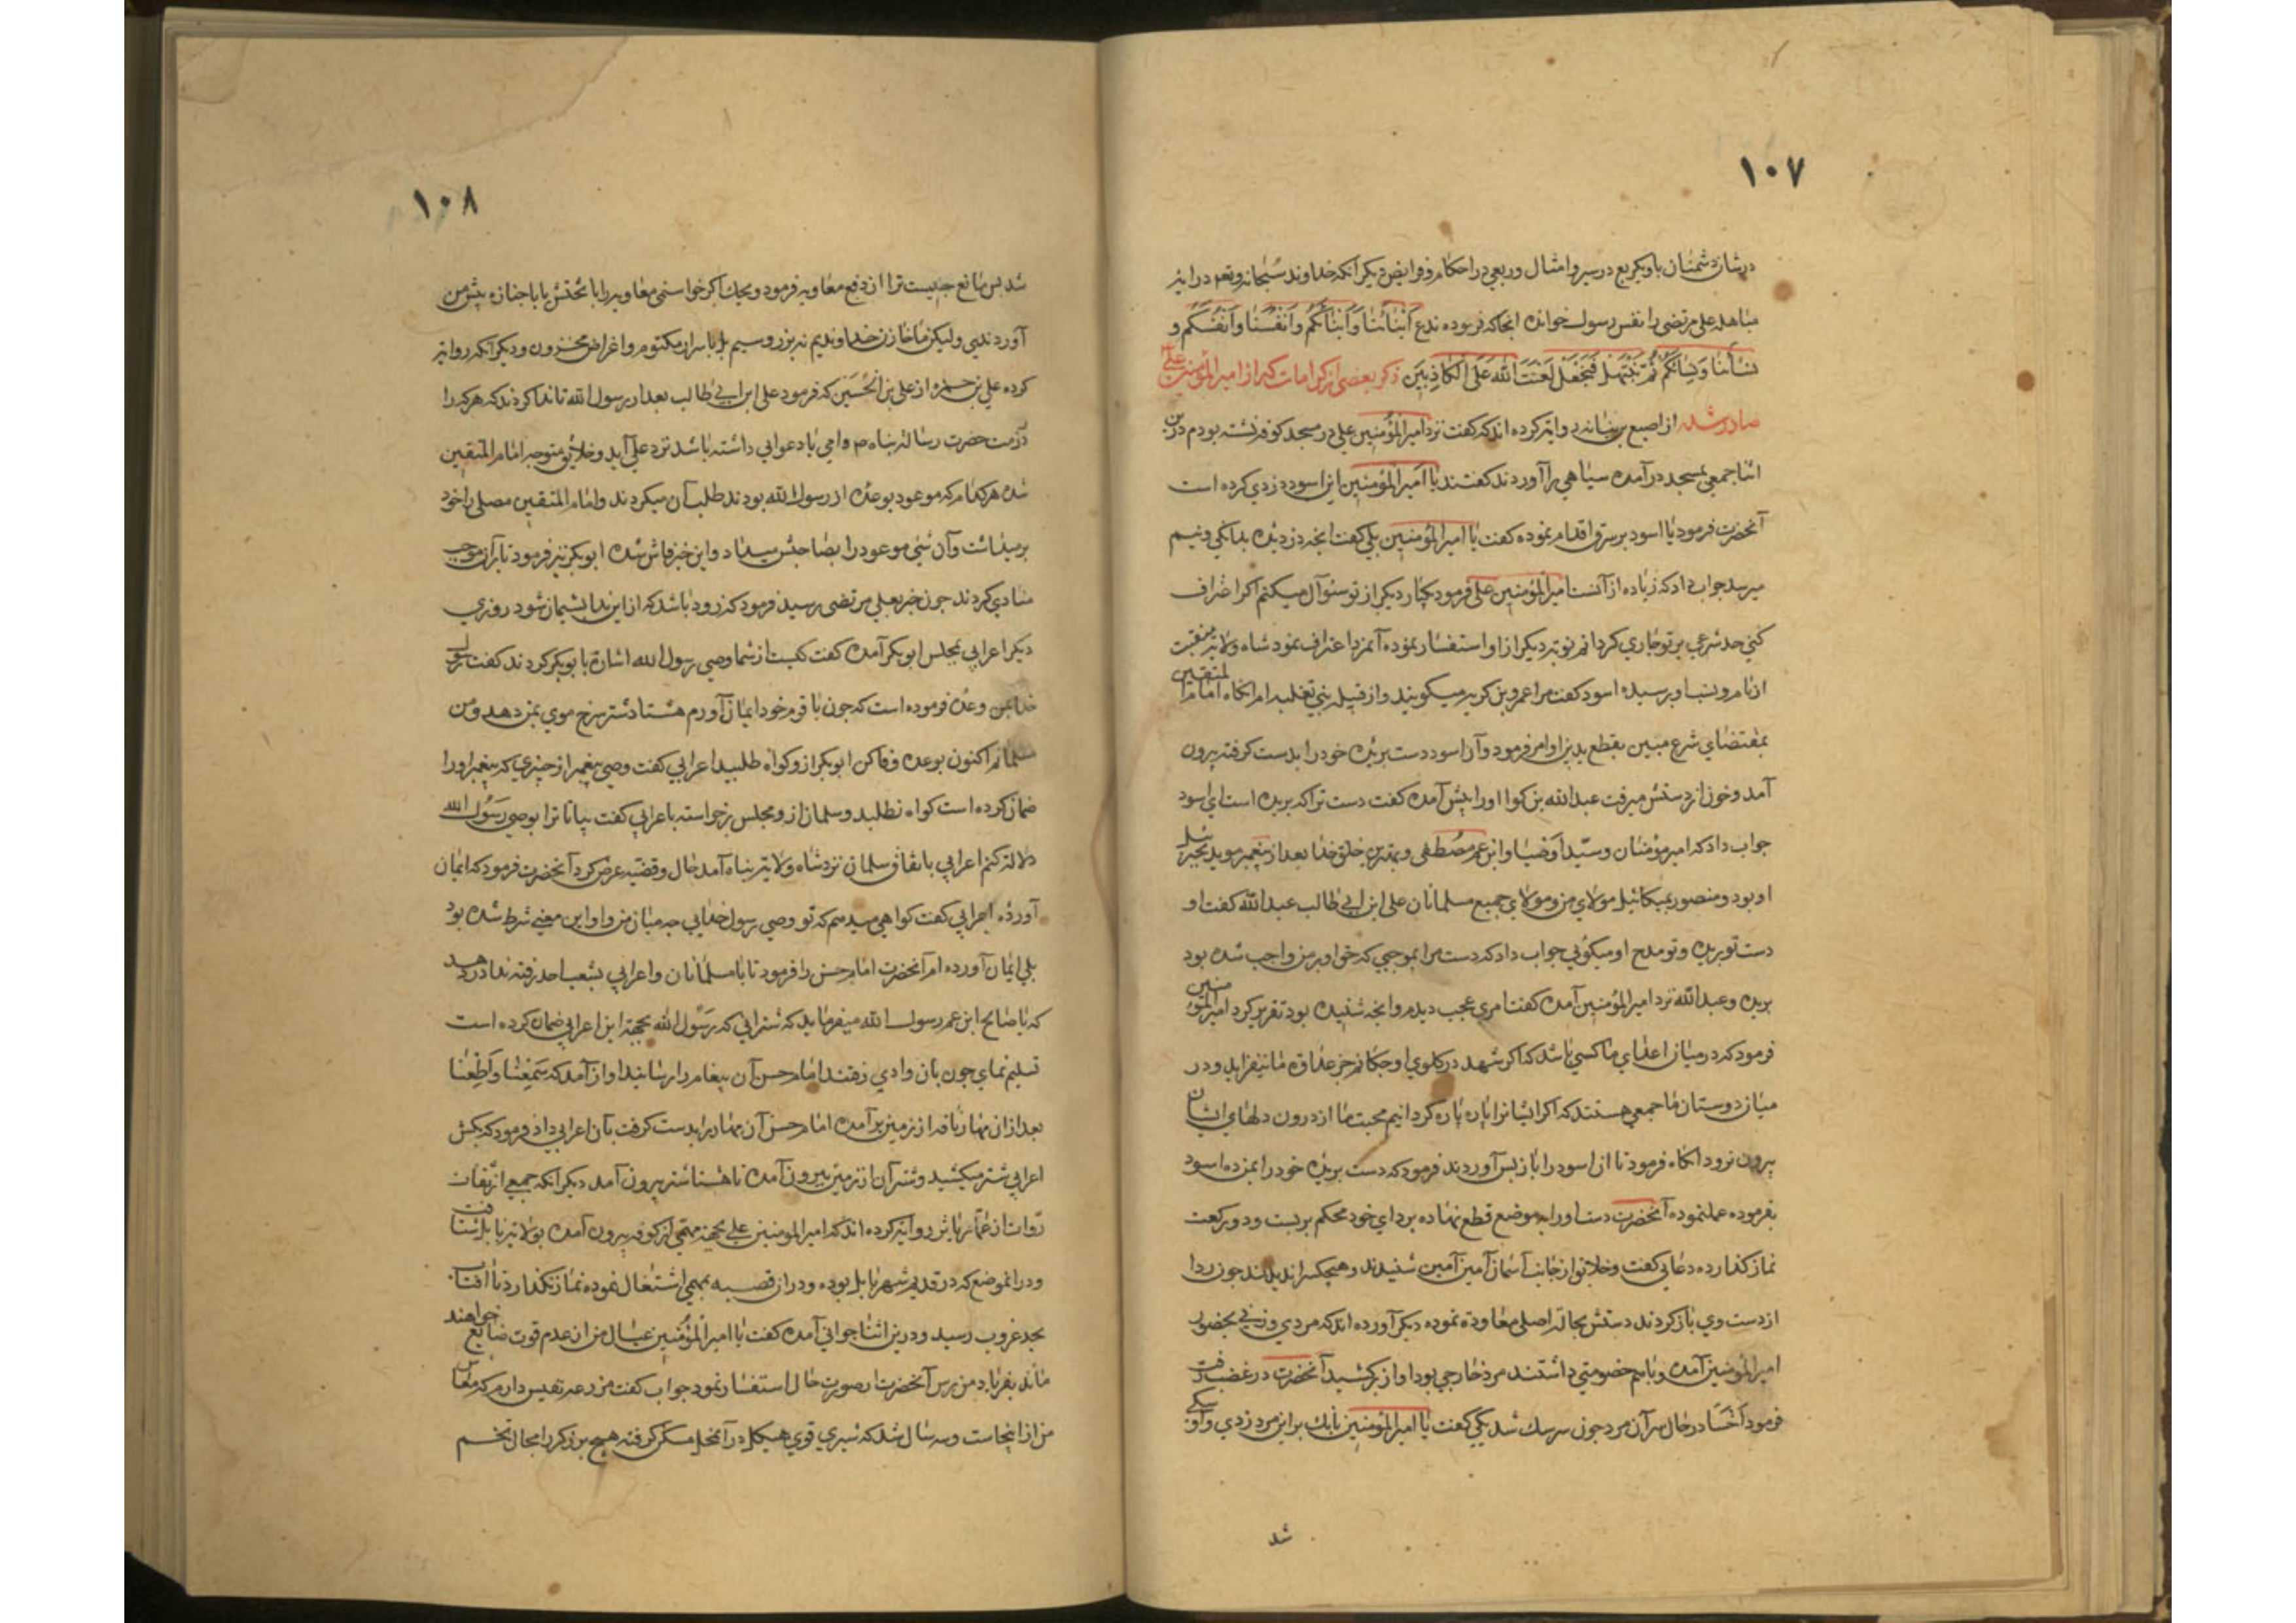 ۱۰۷
در شان دشمنان ما و یکربع در سیر و امثال و ربعی در احکام و فرایض دیکر آنکه خداوند سبحانه و تعو در ایة
مباهله علی مرتضی را نفس رسول خوانده انجا که فرموده ندع اَبْنٰائَنٰا وَاَبْنٰائَكُمْ وَاَنْفُسَنٰا وَاَنْفُسَكُمْ و
نِسٰائَنٰا وَنِسٰائَكُمْ ثُمَّ نَبْتَهِلْ فَنَجْعَلْ لَعْنَتَ اللّٰه عَلَی الْكٰاذِبِیٖنَ ذکر بعضی از کرامات که از امیر المؤمنین علی
صادر شد از اصبع بن نباته روایة کرده اند که گفت نزد امیر المؤمنین علی در مسجد کوفه نشسته بودم درین
اثنا جمعی بمسجد درآمده سیاهی را آوردند کفتند یا امیر المؤمنین این اسود دزدی کرده است
آنحضرت فرمود یا اسود بر سرقه اقدام نموده کفت یا امیر المؤمنین بلی کفت انچه دزدیده بدانکی و نیم
میرسد جواب داد که زیاده از آنست امیر المؤمنین علی فرمود یکبار دیکر از تو سئوآل میکنم اکر اعتراف
کنی حد شرعی بر تو جاری کردانم نوبة دیکر از او استفسار نموده آنمرد اعتراف نمود شاه ولایة منقبت
از نام و نسب او پرسیده اسود کفت مرا عمرو بن کریه میکویند و از قبیله بنی تغلبه ام انکاه امام المتقین
بمقتضای شرع مبین بقطع ید بزا وامر فرمود و آن اسود دست بریده خود را بدست کرفته بیرون
آمد و خون از دستش میرفت عبد الله بن کوا او را پیش آمده کفت دست ترا که بریده است ای اسود
جواب داد که امیر مؤمنان و سیّد اوصیا و ابن عم مصطفی و بهترین خلق خدا بعد از پیغمبر موید بجبرئیل
او بود و منصور بمیکائیل مولای من و مولای جمیع مسلمانان علی ابن ابی طالب عبد الله کفت او
دست تو بریده و تو مدح او میکوئی جواب داد که دست مرا بموجبی که حق او بر من واجب شده بود
بریده و عبد الله نزد امیر المؤمنین آمده کفت امری عجب دیدم و انچه شنیده بود تقریر کرد امیر المؤمنین
فرمود که در میان اعدای ما کسی باشد که اکر شهد در کلوی او چکانم جز عداوة ما نیفزاید و در
میان دوستان ما جمعی هستند که اکر ایشانرا پاره پاره کردانیم محبت ما از درون دلهای ایشان
بیرون نرود انکاه فرمود تا ان اسود را باز پس آوردند فرمود که دست بریده خود را بمن ده اسود
بفرموده عمل نموده آنحضرت دست او را بموضع قطع نهاده بردای خود محکم بربست و دو رکعت
نماز کذارده دعایی کفت و خلایق از جانب آسمان آمین آمین شنیدند و هیچکس را ندیدند چون ردا
از دست وی باز کردند دستش بحالة اصلی معاودة نموده دیکر آورده اند که مردی و زنی بحضور
امیر المؤمنین آمده و باهم خصومتی داشتند مرد خارجی بود اواز برکشید آنحضرت در غضب رفت
فرمود اَخْسَأْ در حال سر آن مرد چون سر سك شد یکی کفت یا امیر المؤمنین بانك بر این مرد زدی و او سکی
شد
۱۰۸
شد پس مانع چیست ترا از دفع معاویه فرمود ویحك اکر خواستمی معاویه را با تختش یا با جنازه پیش من
آوردندی ولیکن ما خازن خداوندیم نه بزر و سیم بل باسرار مکتوم و اغراض مخزون و دیکر آنکه روایة
کرده علی بن حمزه از علی بن الحسین که فرمود علی ابن ابی طالب بعد از رسول الله تا ندا کردند که هر که را
در ذمت حضرت رسالة پناه ص وامی یا دعوایی داشته باشد نزد علی آید و خلایق متوجه امام المتقین
شده هر کدام که موعود بوعده از رسول الله بودند طلب آن میکردند و امام المتقین مصلی را خود
برمیداشت و آن شئی موعود را بصاحبش میداد و این خبر فاش شده ابوبکر نیز فرمود تا بر آن موجب
منادی کردند چون خبر بعلی مرتضی رسید فرمود که زود باشد که از این ندا پشیمان شود روزی
دیکر اعرابی بمجلس ابوبکر آمده کفت کیست از شما وصی رسول الله اشارة بابوبکر کردند کفت رسول
خدا بمن وعده فرموده است که چون با قوم خود ایمان آورم هشتاد شتر سرخ موی بمن دهد و من
مسلمانم اکنون بوعده وفا کن ابوبکر از و کواه طلبید اعرابی کفت وصی پیغمبر از چیزی که پیغمبر او را
ضمان کرده است کواه نطلبد و سلمان از و مجلس برخواسته باعرابی کفت بیا تا ترا بوصی رَسُول الله
دلالة کنم اعرابی باتفاق سلمان نزد شاه ولایة پناه آمد حال و قضیه عرض کرد آنحضرت فرمود که ایمان
آورده اعرابی کفت کواهی میدهم که تو وصی رسول خدایی چه میان من و او این معنی شرط شده بود
بلی ایمان آورده ام آنحضرت امام حسن را فرمود تا با سلمانان و اعرابی بشعب احد رفته ندا در دهد
که یا صالح ابن عم رسول الله میفرماید که شترانی که رَسُول الله بجهة این اعرابی ضمان کرده است
تسلیم نمای چون بان وادی رفتند امام حسن آن پیغام را رسانید اواز آمد که سَمِعْنٰا وَاَطَعْنٰا
بعد از ان مهار ناقه از زمین برآمده امام حسن آن مهار را بدست کرفت بآن اعرابی داد فرمود که بکش
اعرابی شتر میکشید و شتران از زمین بیرون آمده تا هشتاد شتر بیرون آمد دیکر آنکه جمعی از ثقات
روات از عمّار یاسر روایة کرده اند که امیر المومنین علی بجهة مهمّی از کوفه بیرون آمده بولایة بابل شتافت
و در انموضع که در قدیم شهر بابل بوده و در ان قصبه بمهمی اشتغال نموده نماز نکذارد تا افتاب
بحد غروب رسید و درین اثنا جوانی آمده کفت یا امیر المؤمنین عیال من از عدم قوت ضایع خواهند
ماند بفریاد من برس آنحضرت از صورت حال استفسار نمود جواب کفت مزرعه نفیس دارم که معاش
من از انجاست و سه سال شد که شیری قوی هیکل در آنمحل مسکن کرفته هیچ برزکر را مجال تخم